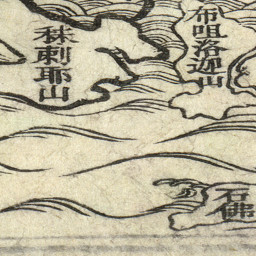 布呾洛迦山
秣剌耶山
石佛